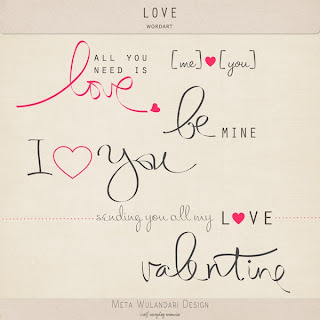 LOVE
WORDART
ALL YOU
NEED IS
love
[me]♥[you]
be MINE
I ♡ you
sending you all my LOVE
valentine
META WULANDARI DESIGN